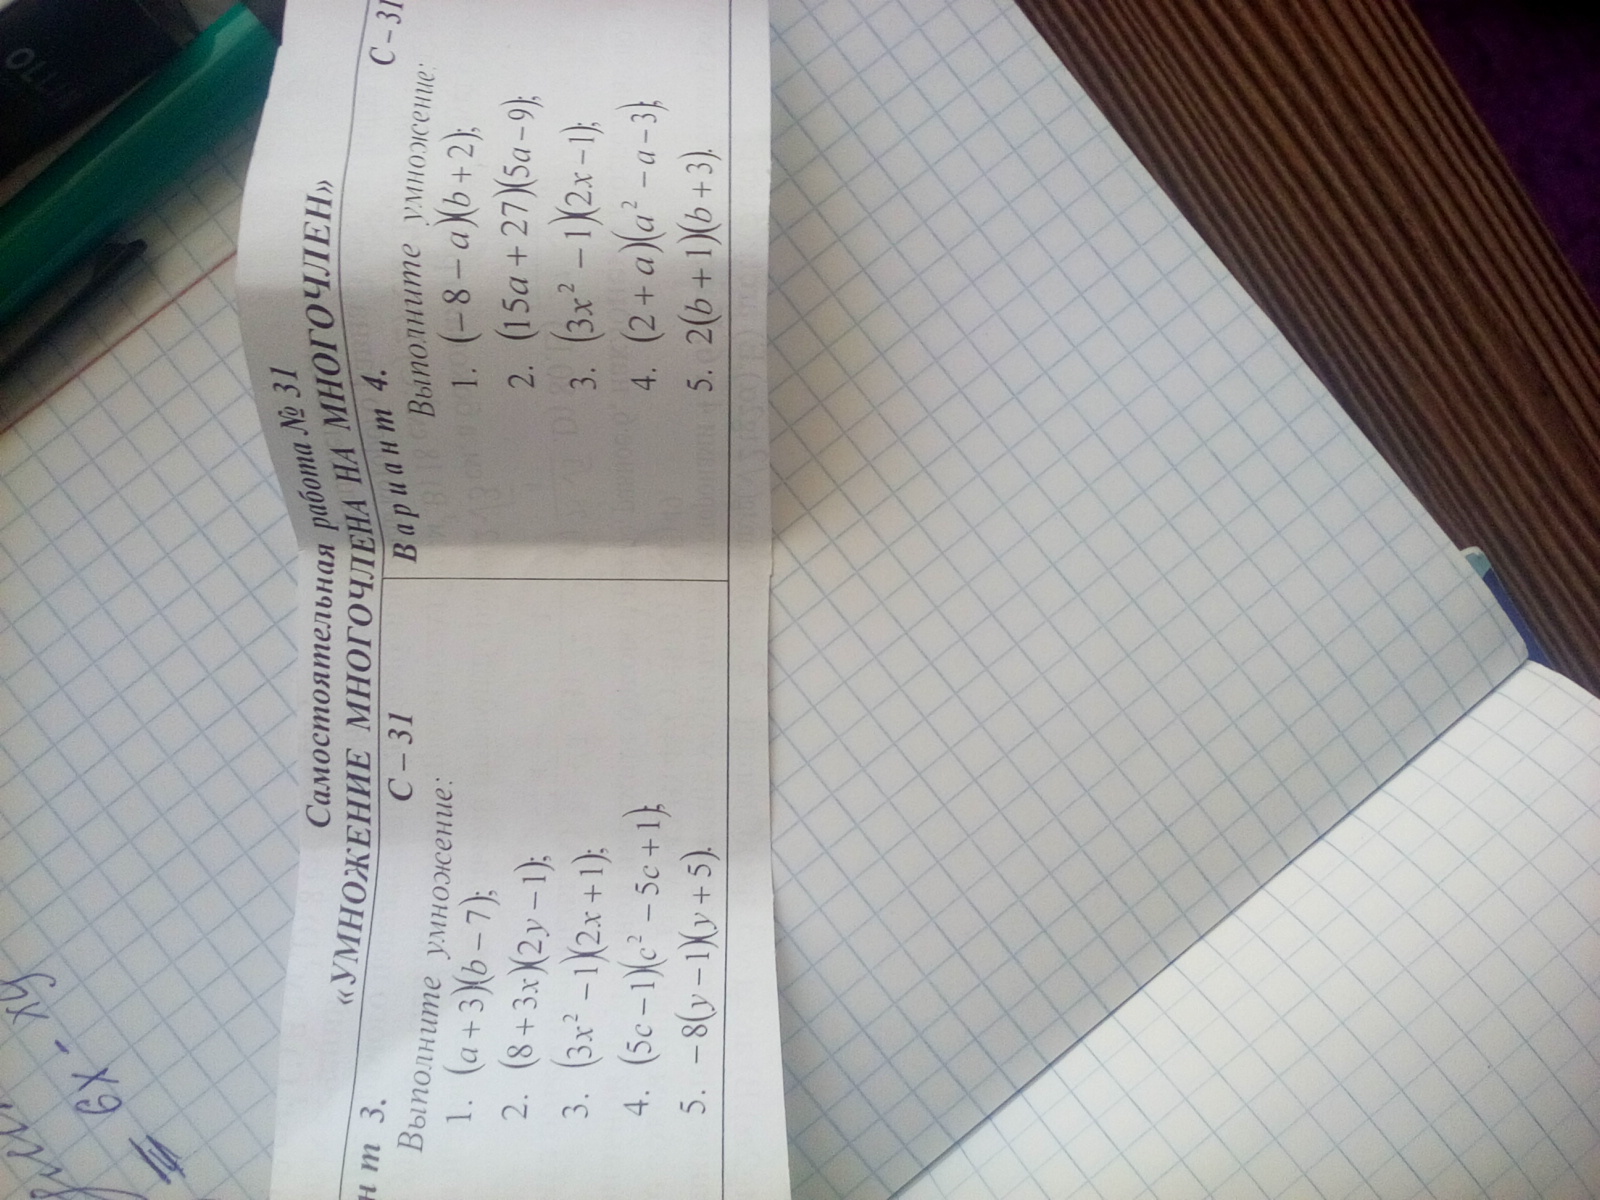 Самостоятельная работа № 31
«УМНОЖЕНИЕ МНОГОЧЛЕНА НА МНОГОЧЛЕН»
нт 3. С – 31
Выполните умножение:
1. (a + 3)(b – 7);
2. (8 + 3x)(2y – 1);
3. (3x² – 1)(2x + 1);
4. (5c – 1)(c² – 5c + 1);
5. – 8(y – 1)(y + 5).
Вариант 4. С – 31
Выполните умножение:
1. (– 8 – a)(b + 2);
2. (15a + 27)(5a – 9);
3. (3x² – 1)(2x – 1);
4. (2 + a)(a² – a – 3);
5. 2(b + 1)(b + 3).
6x · xy
OTTO